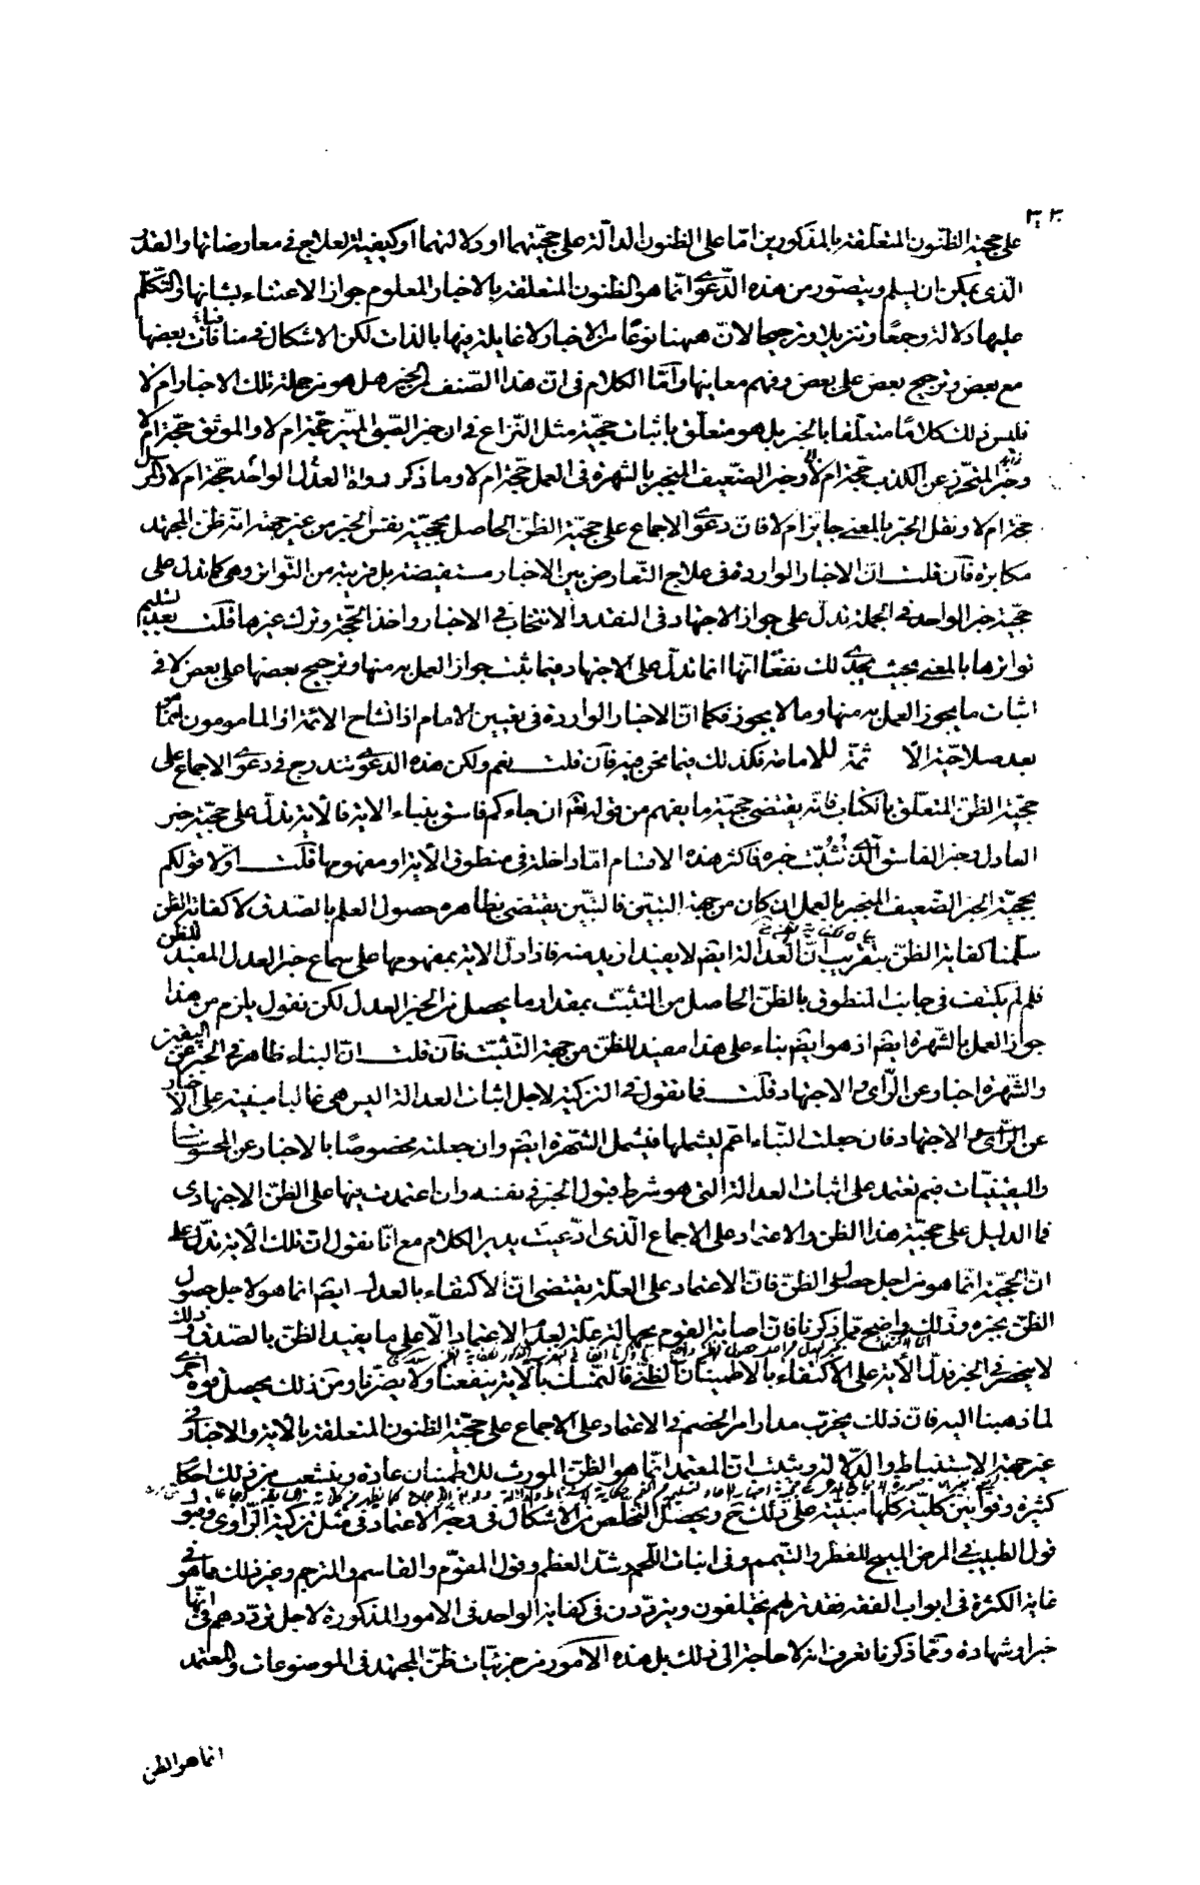 ٣٣٠
على حجيّة الظنون المتعلّقة بالمذكورين امّا على الظنون الدالّة على حجيّتهما او دلالتهما او كيفية العلاج فى معارضاتها والقدر
الّذى يمكن ان يسلم ويتصوّر من هذه الدّعوى انّما هو الظنون المتعلقة بالاخبار المعلوم جواز الاعتناء بشانها والتّكلّم
عليها دلالة وجمعًا وتنزيلا وترجيحا لانّ ههنا نوعًا من الاخبار لا غايلة فيها بالذات لكن الاشكال فى منافات بعضها
مع بعض وترجيح بعض على بعض وفهم معاينها وامّا الكلام فى انّ هذا الصّنف من الخبر هل هو من جملة تلك الاخبار ام لا
فليس ذلك كلامًا متعلّقا بالخبر بل هو متعلّق باثبات حجيّة مثل النّزاع فى ان خبر الصّبى المميّز حجّة ام لا والموثق حجّة ام لا
وخبر المتحرّز عن الكذب حجّة ام لا وخبر الضّعيف المنجبر بالشهرة فى العمل حجّة ام لا وما ذكر رواة العدل الواحد حجّة ام لا والمرسل
حجّة ام لا ونقل الخبر بالمعنى جايز ام لا فانّ دعوى الاجماع على حجيّة الظنّ الحاصل بحجيّة نفس الخبر من غير جهة انّه ظن المجتهد
مكابرة فان قلت انّ الاخبار الواردة فى علاج التّعارض بين الاخبار مستفيضة بل قريبة من التّواتر وهى كما تدل على
حجيّة خبر الواحد فى الجملة تدلّ على جواز الاجتهاد فى النقد والانتخاب فى الاخبار واخذ الحجّة وترك غيرها قلت بعد تسليم
تواترها بالمعنى بحيث يجدى لك نفعًا انّها انما تدلّ على الاجتهاد فيما ثبت جواز العمل به منها وترجيح بعضها على بعض لا فى
اثبات ما يجوز العمل به منها وما لا يجوز فكما انّ الاخبار الواردة فى تعيين الامام اذا تشاح الائمّة او المامومون انّما هو
بعد صلاحيّة الائمّة للامامة فكذلك فيما نحن فيه فان قلت نعم ولكن هذه الدعوى تندرج فى دعوى الاجماع على
حجيّة الظنّ المتعلّق بالكتاب فانّه يقتضى حجيّة ما يفهم من قوله تعالى ان جاءكم فاسق بنباء الاية فالاية تدلّ على حجيّة خبر
العادل وخبر الفاسق الّذى تثبّت خبره فاكثر هذه الاقسام امّا داخلة فى منطوق الاية او مفهومها قلت اوّلا قولكم
بحجيّة الخبر الضّعيف المنجبر بالعمل ان كان من جهة التبيّن فالتبيّن يقتضى بظاهره حصول العلم بالصّدق لا كفاية الظن
سلّمنا كفاية الظنّ بتقريب انّ العدالة ايضا لا يفيد ازيد منه فاذا دلّ الاية بمفهومها على سماع خبر العدل المفيد للظن
فلم لم يكتف فى جانب المنطوق بالظنّ الحاصل من التثبّت بمقدار ما يحصل من الخبر العدل لكن نقول يلزم من هذا
جواز العمل بالشّهرة ايضا اذ هو ايضا بناء على هذا مفيد للظنّ من جهة التثبّت فان قلت انّ النباء ظاهر فى الخبر عن اليقين
والشّهرة اخبار عن الرّاى والاجتهاد قلت فما نقول فى التزكية لاجل اثبات العدالة اليس هى غالبا مبنيّة على الاخبار
عن الرّاى والاجتهاد فان جعلت النّباء اعم ليشملها فيشمل الشّهرة ايضا وان جعلته مخصوصًا بالاخبار عن المحسوسات
واليقينيّات فبم تعتمد على اثبات العدالة الّتى هو شرط قبول الخبر فى نفسه وان اعتمدت فيها على الظنّ الاجتهادى
فما الدليل على حجيّة هذا الظن والاعتماد على الاجماع الّذى ادّعيت يدير الكلام مع انّا نقول انّ تلك الاية تدلّ على
انّ الحجيّة انّما هو من اجل حصول الظنّ فانّ الاعتماد على العلّة يقتضى انّ الاكتفاء بالعدل ايضا انما هو لاجل حصول
الظنّ بخبره وذلك واضح ممّا ذكرنا فان اصابة القوم بجهالة علّة لعدم الاعتماد الّا على ما يفيد الظنّ بالصّدق وذلك
لا ينحصر فى الخبر تدلّ الاية على الاكتفاء بالاطمينان الظنّى فالتمسك بالاية ينفعنا ولا يضرّنا ومن ذلك يحصل قوة اخرى
لما ذهبنا اليه فانّ ذلك يخرّب مدار امر الخصم فى الاعتماد على الاجماع على حجيّة الظنون المتعلقة بالاية والاخبار فى
غير جهة الاستنباط والدّلالة ويثبت انّ المعتمد انّما هو الظنّ المورث للاطمئنان عادة وينشعب من ذلك احكام
كثيرة وقوانين كليّة كلها مبتنية على ذلك ح ويحصل التخلّص من الاشكال فى وجه الاعتماد فى مثل تزكية الرّاوى وقبول
قول الطبيب فى المرض المبيح للفطر والتيمم وفى انبات اللّحم وشدّ العظم وقول المقوّم والقاسم والمترجم وغير ذلك ممّا هو فى
غاية الكثرة فى ابواب الفقه فقد تريهم يختلفون ويتردّدون فى كفاية الواحد فى الامور المذكورة لاجل تردّدهم فى انّها
خبر او شهادة وممّا ذكرنا تعرف انه لا حاجة الى ذلك بل هذه الامور من جزئيّات ظنّ المجتهد فى الموضوعات والمعتمد
انّما هو الظن